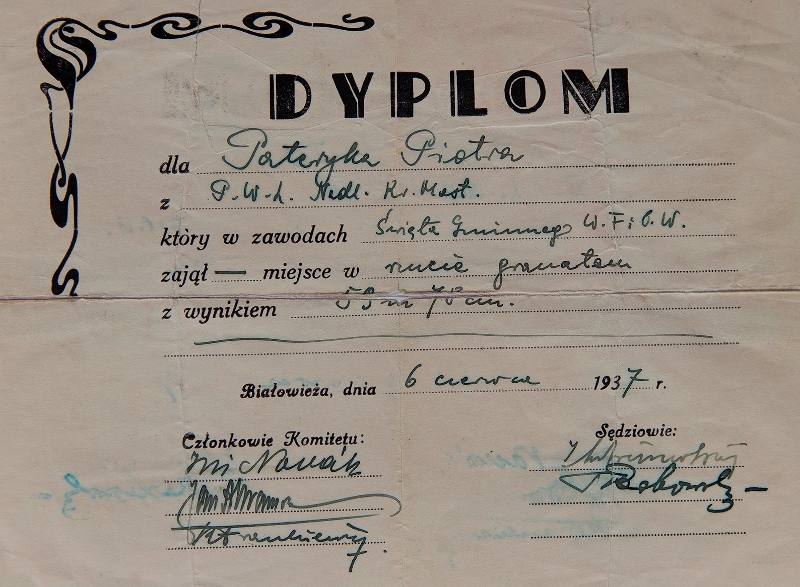 DYPLOM
dla Pateryka Piotra
z P.W.L. Nadl. Kr. Most.
który w zawodach Święta Gminnego W.F. i P.W.
zajął — miejsce w rzucie granatem
z wynikiem 59 m 78 cm.
Białowieża, dnia 6 czerwca 1937 r.
Członkowie Komitetu: Sędziowie:
Nowak
Jan